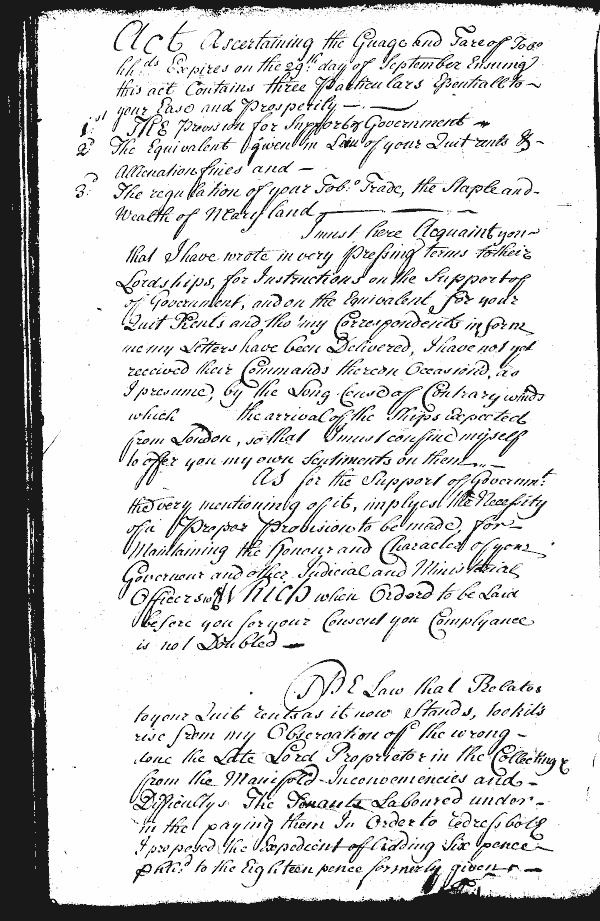 Act Ascertaining the Guage and Tare of Tob:o
hh:ds Expires on the 29th day of September Ensuing
this act Contains three Particulars Essentiall to
your Ease and Prosperity
1st THE Provision for Support of Government
2d The Equivalent given in Lieu of your Quit rents &
Allienation fines and
3d The regulation of your Tob:o Trade, the Staple and
Wealth of Maryland
I must here Acquaint you
that I have wrote in very Pressing terms to their
Lordships, for Instructions on the Support of
of Government, and on the Equivalent for your
Quit Rents and tho' my Correspondents inform
me my Letters have been Delivered, I have not yet
received their Commands thereon Occasiond, as
I presume, by the Long Contrary winds
which the arrival of the Ships expected
from London, so that I must confine myself
to offer you my own Sentiments on them
As for the Support of Governmt
the very mentioning of it, implyes the Necessity
of a Proper Provision to be made, for
Maintaining the Honour and Character of your
Governour and other Judicial and Ministerial
Officers Which when Orderd to be Laid
before you for your Consent you Complyance
is not Doubted
THE Law that Relates
to your Quit rents as it now Stands, took its
rise from my Observation of the wrong
done the Late Lord Proprietor in the Collecting &
from the Manifold Inconveniencies and
Difficultys The Tenants Laboured under
in the paying them In Order to redress both
I proposed the Expedient of Adding Six pence
to the Eighteen pence formerly given